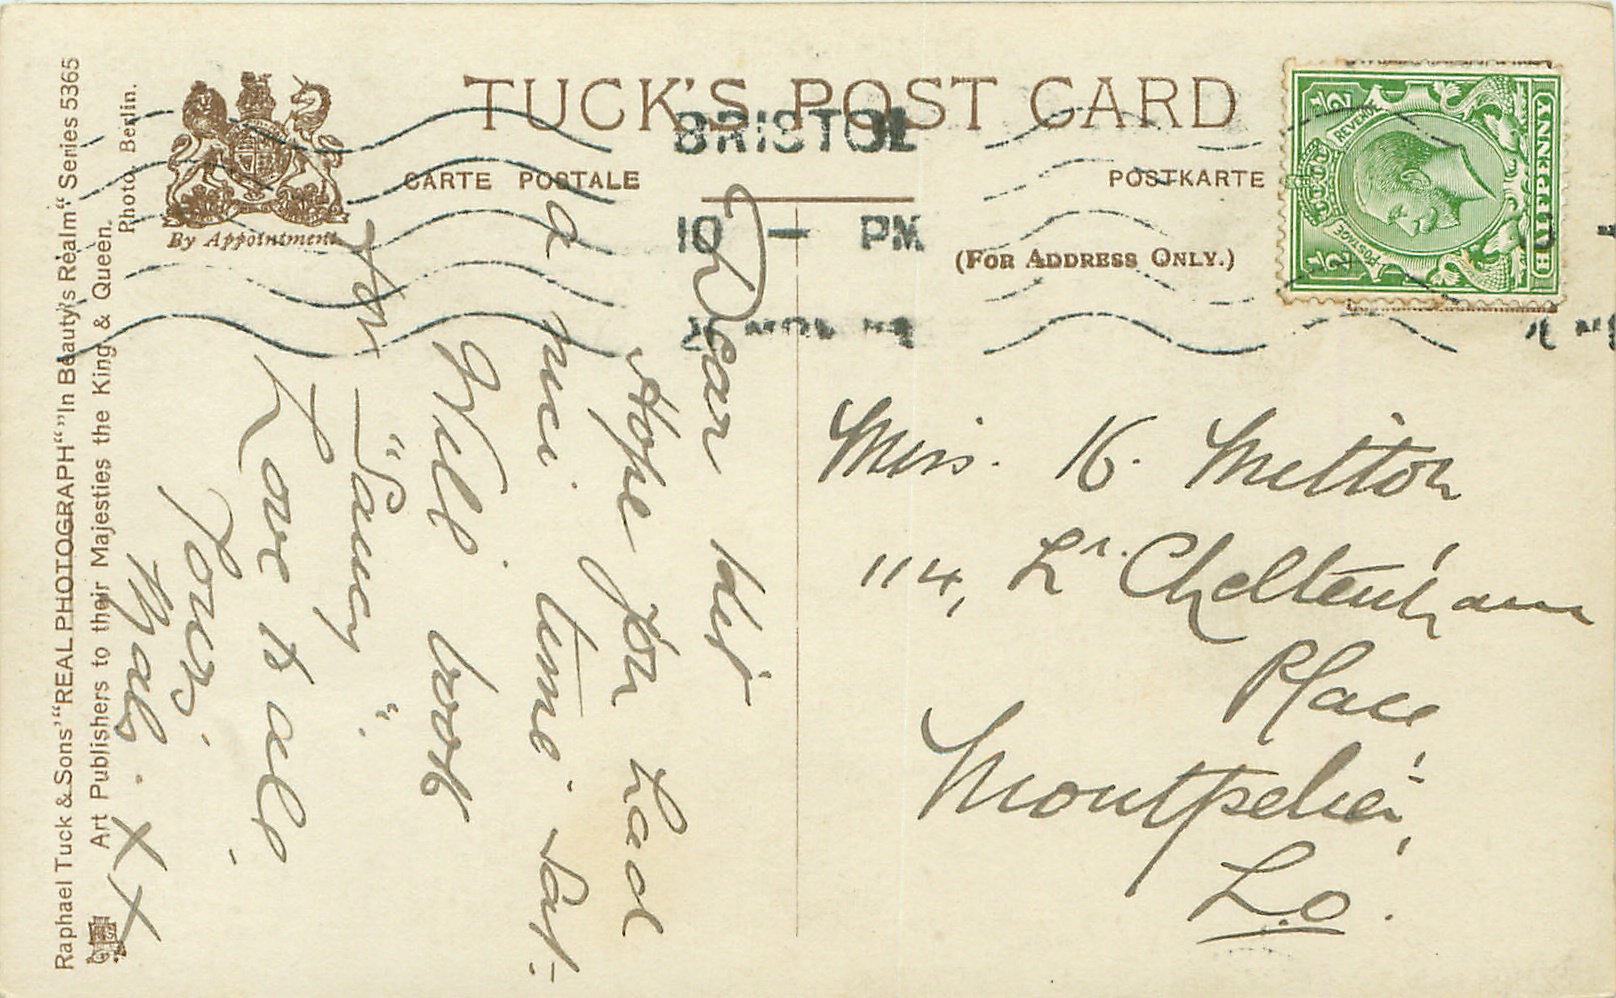 TUCK'S POST CARD
BRISTOL
CARTE POSTALE
POSTKARTE
By Appointment
10 — PM
(FOR ADDRESS ONLY.)
POSTAGE
REVENUE
½
½
HALFPENNY
Raphael Tuck & Sons' "REAL PHOTOGRAPH" "In Beauty's Realm" Series 5365
Art Publishers to their Majesties the King & Queen.
Photo. Berlin.
Dear
Hope you had
a nice time Sat:
Will book
for
"Saucy".
Love to all.
Love,
Mab. X X
Miss. K. Mitton
114, Lr. Cheltenham
Place,
Montpelier,
Lo.